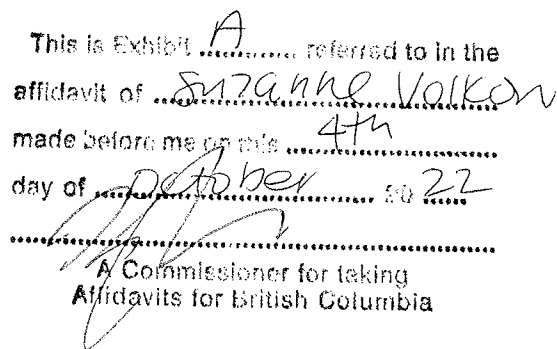 This is Exhibit A referred to in the
affidavit of Suzanne Volkow
made before me on this 4th
day of October 20 22
A Commissioner for taking
Affidavits for British Columbia